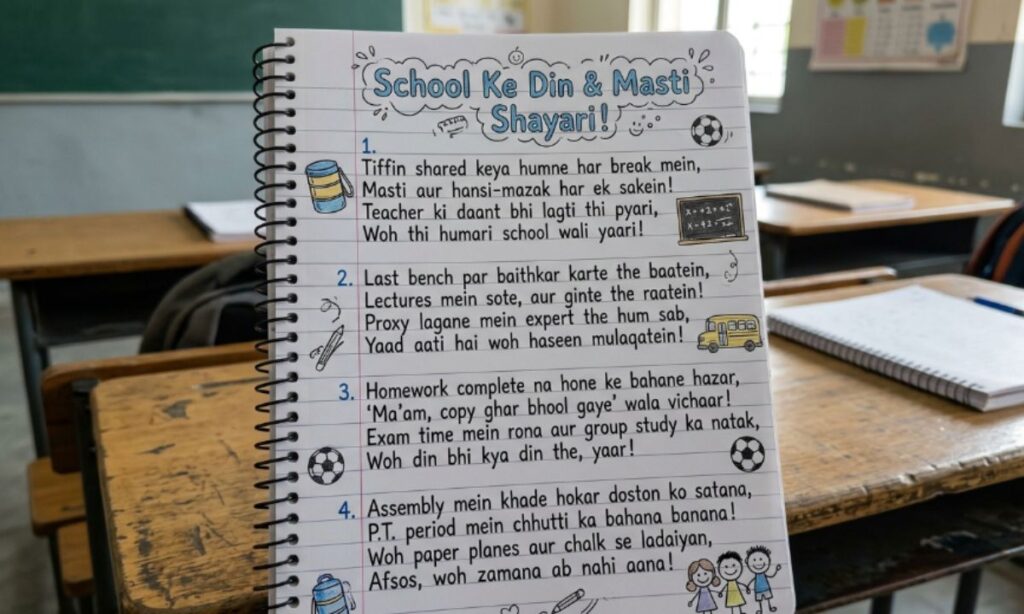 School Ke Din & Masti
Shayari!
1.
Tiffin shared keya humne har break mein,
Masti aur hansi-mazak har ek sakein!
Teacher ki daant bhi lagti thi pyari,
Woh thi humari school wali yaari!
2. Last bench par baithkar karte the baatein,
Lectures mein sote, aur ginte the raatein!
Proxy lagane mein expert the hum sab,
Yaad aati hai woh haseen mulaqatein!
3. Homework complete na hone ke bahane hazar,
‘Ma'am, copy ghar bhool gaye’ wala vichaar!
Exam time mein rona aur group study ka natak,
Woh din bhi kya din the, yaar!
4. Assembly mein khade hokar doston ko satana,
P.T. period mein chhutti ka bahana banana!
Woh paper planes aur chalk se ladaiyan,
Afsos, woh zamana ab nahi aana!